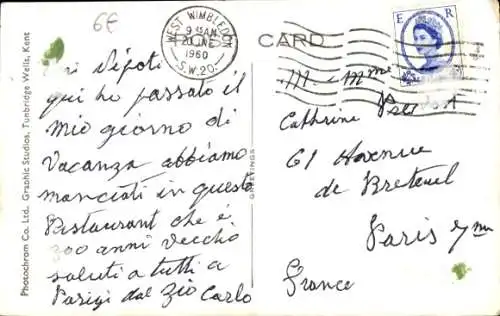 6€
WEST WIMBLEDON
9 15 AM
20 JNE
1960
S.W.20.
CARD
E R
Nipoti
qui ho passato il
mio giorno di
Vacanza abbiamo
manciati in questo
Restaurant che é
300 anni vecchio
saluti a tutti a
Parigi dal Zio Carlo
GREETINGS
M. Mme
Catherine
61 Avenue
de Breteuil
Paris 7me
France
Photochrom Co. Ltd., Graphic Studios, Tunbridge Wells, Kent